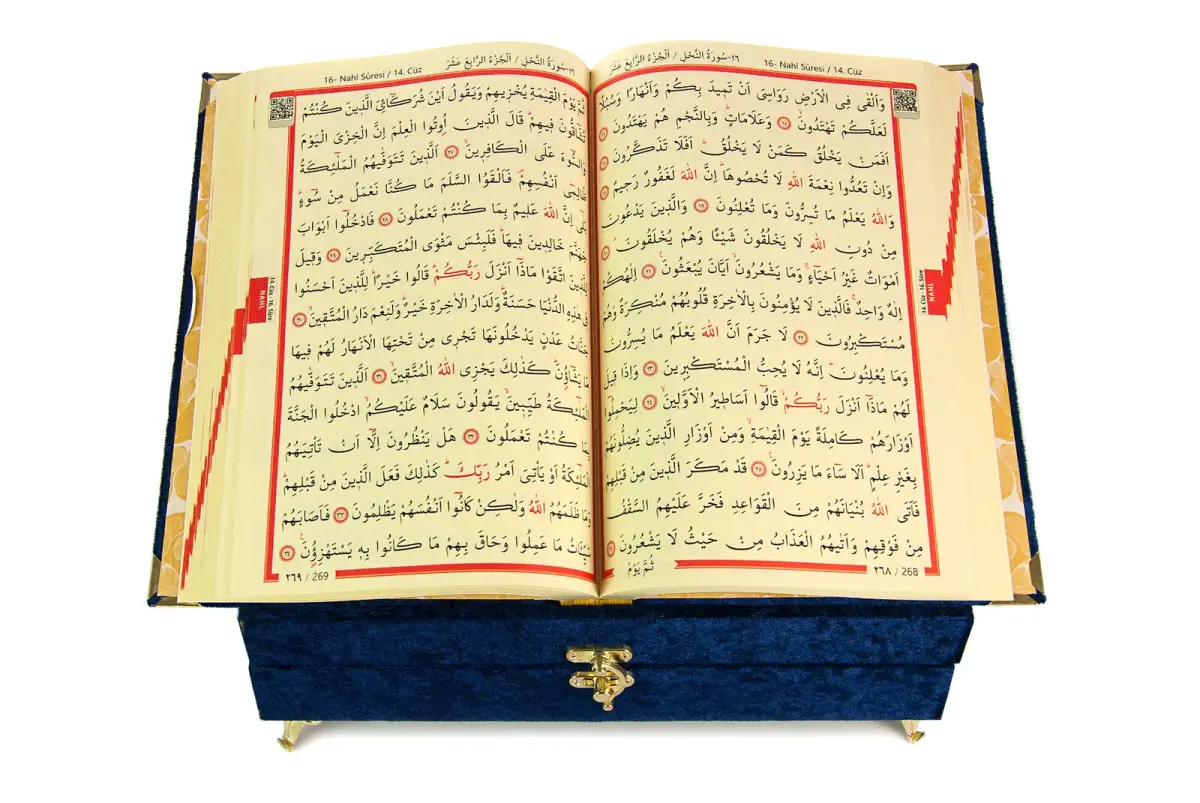 ١٦-سُورَةُ النَّحْلِ / اَلْجُزْءُ الرَّابِعَ عَشَرَ
16- Nahl Sûresi / 14. Cüz
وَاَلْقٰى فِى الْاَرْضِ رَوَاسِىَ اَنْ تَمٖيدَ بِكُمْ وَاَنْهَارًا وَسُبُلًا
لَعَلَّكُمْ تَهْتَدُونَۙ ١٥ وَعَلَامَاتٍؕ وَبِالنَّجْمِ هُمْ يَهْتَدُونَ ١٦
اَفَمَنْ يَخْلُقُ كَمَنْ لَا يَخْلُقُؕ اَفَلَا تَذَكَّرُونَ ١٧
وَاِنْ تَعُدُّوا نِعْمَةَ اللّٰهِ لَا تُحْصُوهَاؕ اِنَّ اللّٰهَ لَغَفُورٌ رَحٖيمٌ ١٨
وَاللّٰهُ يَعْلَمُ مَا تُسِرُّونَ وَمَا تُعْلِنُونَ ١٩ وَالَّذٖينَ يَدْعُونَ
مِنْ دُونِ اللّٰهِ لَا يَخْلُقُونَ شَيْـًٔا وَهُمْ يُخْلَقُونَؕ ٢٠
اَمْوَاتٌ غَيْرُ اَحْيَٓاءٍۚ وَمَا يَشْعُرُونَۙ اَيَّانَ يُبْعَثُونَ۟ ٢١ اِلٰهُكُمْ
اِلٰهٌ وَاحِدٌۚ فَالَّذٖينَ لَا يُؤْمِنُونَ بِالْاٰخِرَةِ قُلُوبُهُمْ مُنْكِرَةٌ وَهُمْ
مُسْتَكْبِرُونَ ٢٢ لَا جَرَمَ اَنَّ اللّٰهَ يَعْلَمُ مَا يُسِرُّونَ
وَمَا يُعْلِنُونَؕ اِنَّهُ لَا يُحِبُّ الْمُسْتَكْبِرٖينَ ٢٣ وَاِذَا قٖيلَ
لَهُمْ مَاذَٓا اَنْزَلَ رَبُّكُمْۙ قَالُٓوا اَسَاطٖيرُ الْاَوَّلٖينَۙ ٢٤ لِيَحْمِلُٓوا
اَوْزَارَهُمْ كَامِلَةً يَوْمَ الْقِيٰمَةِۙ وَمِنْ اَوْزَارِ الَّذٖينَ يُضِلُّونَهُمْ
بِغَيْرِ عِلْمٍؕ اَلَا سَٓاءَ مَا يَزِرُونَ۟ ٢٥ قَدْ مَكَرَ الَّذٖينَ مِنْ قَبْلِهِمْ
فَاَتَى اللّٰهُ بُنْيَانَهُمْ مِنَ الْقَوَاعِدِ فَخَرَّ عَلَيْهِمُ السَّقْفُ
مِنْ فَوْقِهِمْ وَاَتٰيهُمُ الْعَذَابُ مِنْ حَيْثُ لَا يَشْعُرُونَ ٢٦
ثُمَّ يَوْمَ
٢٦٨ / 268
14. Cüz - 16. Sûre
NAHL
١٦-سُورَةُ النَّحْلِ / اَلْجُزْءُ الرَّابِعَ عَشَرَ
16- Nahl Sûresi / 14. Cüz
ثُمَّ يَوْمَ الْقِيٰمَةِ يُخْزٖيهِمْ وَيَقُولُ اَيْنَ شُرَكَٓاءِىَ الَّذٖينَ كُنْتُمْ
تُشَٓاقُّونَ فٖيهِمْؕ قَالَ الَّذٖينَ اُوتُوا الْعِلْمَ اِنَّ الْخِزْىَ الْيَوْمَ
وَالسُّٓوءَ عَلَى الْكَافِرٖينَۙ ٢٧ اَلَّذٖينَ تَتَوَفّٰيهُمُ الْمَلٰٓئِكَةُ
ظَالِمٖٓى اَنْفُسِهِمْࣕ فَاَلْقَوُا السَّلَمَ مَا كُنَّا نَعْمَلُ مِنْ سُٓوءٍؕ
بَلٰٓى اِنَّ اللّٰهَ عَلٖيمٌ بِمَا كُنْتُمْ تَعْمَلُونَ ٢٨ فَادْخُلُٓوا اَبْوَابَ
جَهَنَّمَ خَالِدٖينَ فٖيهَاؕ فَلَبِئْسَ مَثْوَى الْمُتَكَبِّرٖينَ ٢٩ وَقٖيلَ
لِلَّذٖينَ اتَّقَوْا مَاذَٓا اَنْزَلَ رَبُّكُمْؕ قَالُوا خَيْرًاؕ لِلَّذٖينَ اَحْسَنُوا
فٖى هٰذِهِ الدُّنْيَا حَسَنَةٌؕ وَلَدَارُ الْاٰخِرَةِ خَيْرٌؕ وَلَنِعْمَ دَارُ الْمُتَّقٖينَۙ ٣٠
جَنَّاتُ عَدْنٍ يَدْخُلُونَهَا تَجْرٖى مِنْ تَحْتِهَا الْاَنْهَارُ لَهُمْ فٖيهَا
مَا يَشَٓاؤُ۫نَؕ كَذٰلِكَ يَجْزِى اللّٰهُ الْمُتَّقٖينَۙ ٣١ اَلَّذٖينَ تَتَوَفّٰيهُمُ
الْمَلٰٓئِكَةُ طَيِّبٖينَۙ يَقُولُونَ سَلَامٌ عَلَيْكُمُۙ ادْخُلُوا الْجَنَّةَ
بِمَا كُنْتُمْ تَعْمَلُونَ ٣٢ هَلْ يَنْظُرُونَ اِلَّٓا اَنْ تَأْتِيَهُمُ
الْمَلٰٓئِكَةُ اَوْ يَأْتِىَ اَمْرُ رَبِّكَؕ كَذٰلِكَ فَعَلَ الَّذٖينَ مِنْ قَبْلِهِمْؕ
وَمَا ظَلَمَهُمُ اللّٰهُ وَلٰكِنْ كَانُٓوا اَنْفُسَهُمْ يَظْلِمُونَ ٣٣ فَاَصَابَهُمْ
سَيِّـَٔاتُ مَا عَمِلُوا وَحَاقَ بِهِمْ مَا كَانُوا بِهٖ يَسْتَهْزِؤُ۫نَ۟ ٣٤
٢٦٩ / 269
14. Cüz - 16. Sûre
NAHL